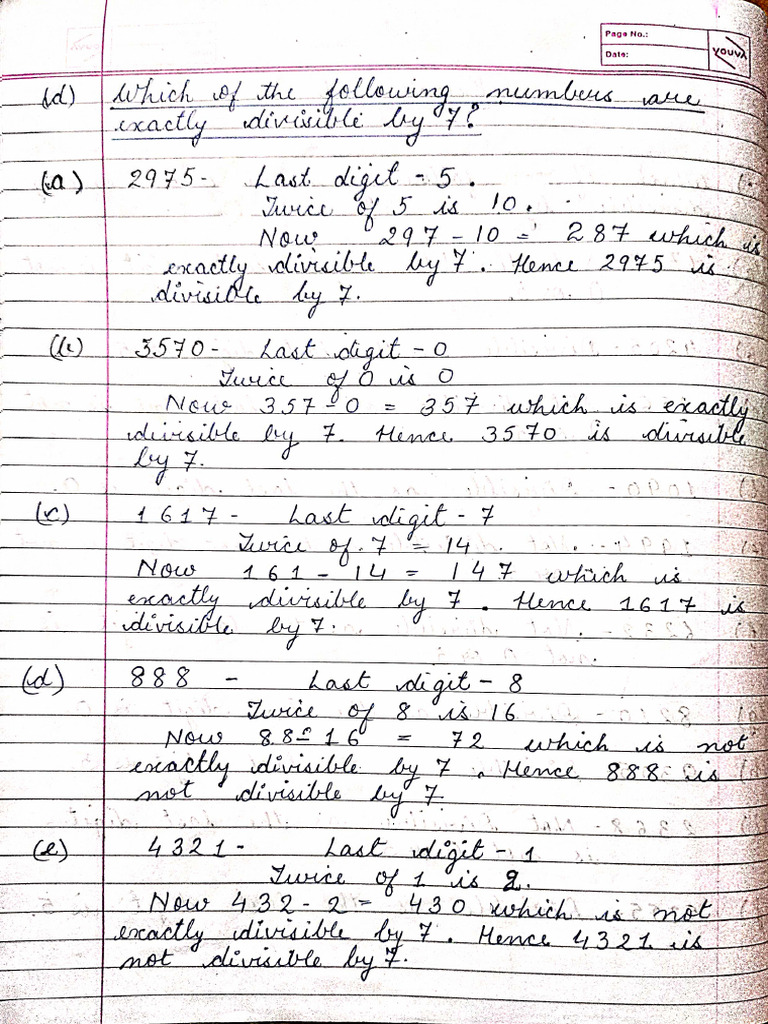 Page No.:
Date:
youva
(d) Which of the following numbers are
exactly divisible by 7?
(a) 2975- Last digit - 5.
Twice of 5 is 10.
Now 297 - 10 = 287 which is
exactly divisible by 7. Hence 2975 is
divisible by 7.
(b) 3570- Last digit - 0
Twice of 0 is 0
Now 357-0 = 357 which is exactly
divisible by 7. Hence 3570 is divisible
by 7.
(c) 1617- Last digit - 7
Twice of 7 = 14.
Now 161 - 14 = 147 which is
exactly divisible by 7. Hence 1617 is
divisible by 7.
(d) 888 - Last digit - 8
Twice of 8 is 16
Now 88-16 = 72 which is not
exactly divisible by 7. Hence 888 is
not divisible by 7
(e) 4321- Last digit - 1
Twice of 1 is 2.
Now 432-2 = 430 which is not
exactly divisible by 7. Hence 4321 is
not divisible by 7.